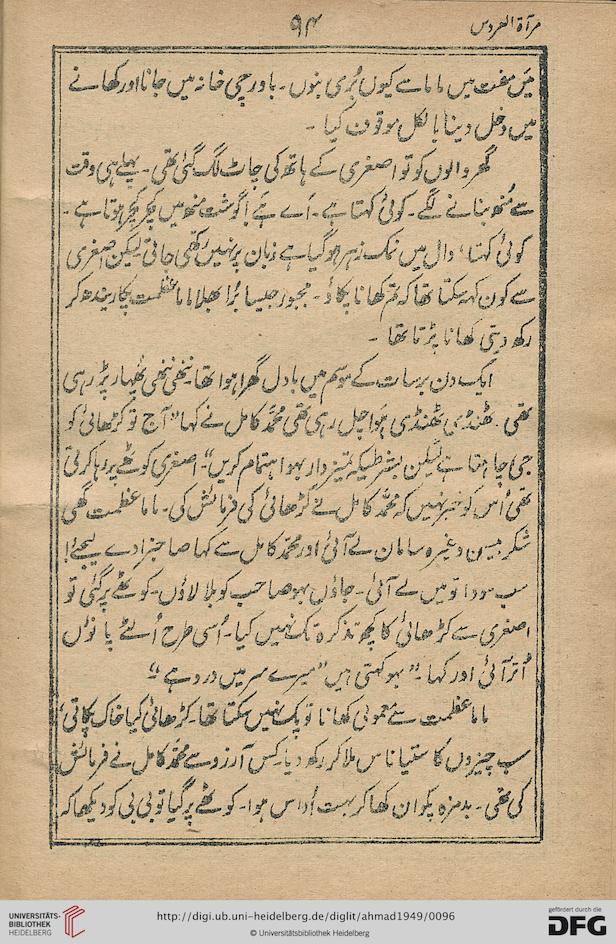 مرآۃ العروس
۹۴
میں مفت میں ماما سے کیوں بُری بنوں۔ باورچی خانہ میں جانا اور کھانے
میں دخل دینا بالکل موقوف کیا۔
گھر والوں کو تو اصغری کے ہاتھ کی چاٹ لگ گئی تھی۔ پہلے ہی وقت
سے مُنھ بنانے لگے۔ کوئی کہتا ہے۔ اَے ہَے! گوشت منھ میں کچر کچر ہوتا ہے۔
کوئی کہتا، دال میں نمک زہر ہو گیا ہے زبان پر نہیں رکھی جاتی لیکن اصغری
سے کون کہہ سکتا تھا کہ تم کھانا پکاؤ۔ مجبور جیسا بُرا بھلا ماما عظمت پکا ریندھ کر
رکھ دیتی کھانا پڑتا تھا۔
ایک دن برسات کے موسم میں بادل گھرا ہوا تھا۔ ننھی ننھی پھُہار پڑ رہی
تھی۔ ٹھنڈی ٹھنڈی ہوا چل رہی تھی محمّد کامل نے کہا ”آج تو کڑھائی کو
جی چاہتا ہے لیکن بشرطیکہ تمیزدار بہو اہتمام کریں“۔ اصغری کوٹھے پر رہا کرتی
تھی اُس کو خبر نہیں کہ محمّد کامل نے کڑھائی کی فرمائش کی۔ ماما عظمت گھی
شکر بیسن وغیرہ سامان لے آئی اور محمّد کامل سے کہا صاحبزادے لیجئے!
سب سودا تو میں لے آئی۔ جاؤں بہو صاحب کو بلا لاؤں۔ کوٹھے پر گئی تو
اصغری سے کڑھائی کا کچھ تذکرہ تک نہیں کیا۔ اُسی طرح اُلٹے پانؤں
اُتر آئی اور کہا۔ ”بہو کہتی ہیں ”میرے سر میں درد ہے“
ماما عظمت سے معمولی کھانا تو پک نہیں سکتا تھا۔ کڑھائی کیا خاک پکاتی،
سب چیزوں کا ستیاناس ملا کر رکھ دیا۔ کس آرزو سے محمّد کامل نے فرمائش
کی تھی۔ بدمزہ پکوان کھا کر بہت اُداس ہوا۔ کوٹھے پر گیا تو بی بی کو دیکھا کہ
UNIVERSITÄTS-
BIBLIOTHEK
HEIDELBERG
http://digi.ub.uni-heidelberg.de/diglit/ahmad1949/0096
© Universitätsbibliothek Heidelberg
gefördert durch die
DFG